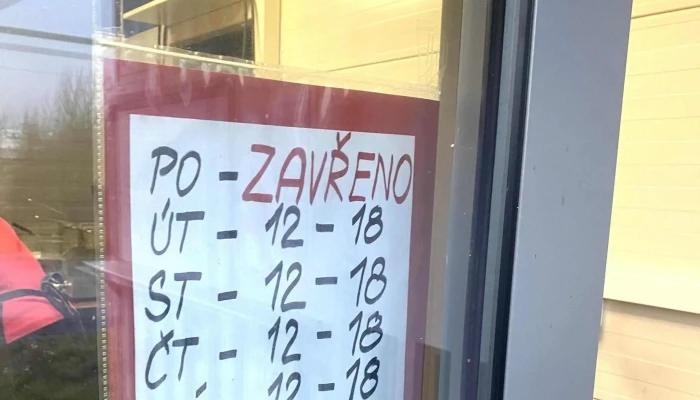 PO - ZAVŘENO
ÚT - 12 - 18
ST - 12 - 18
ČT - 12 - 18
12 - 18